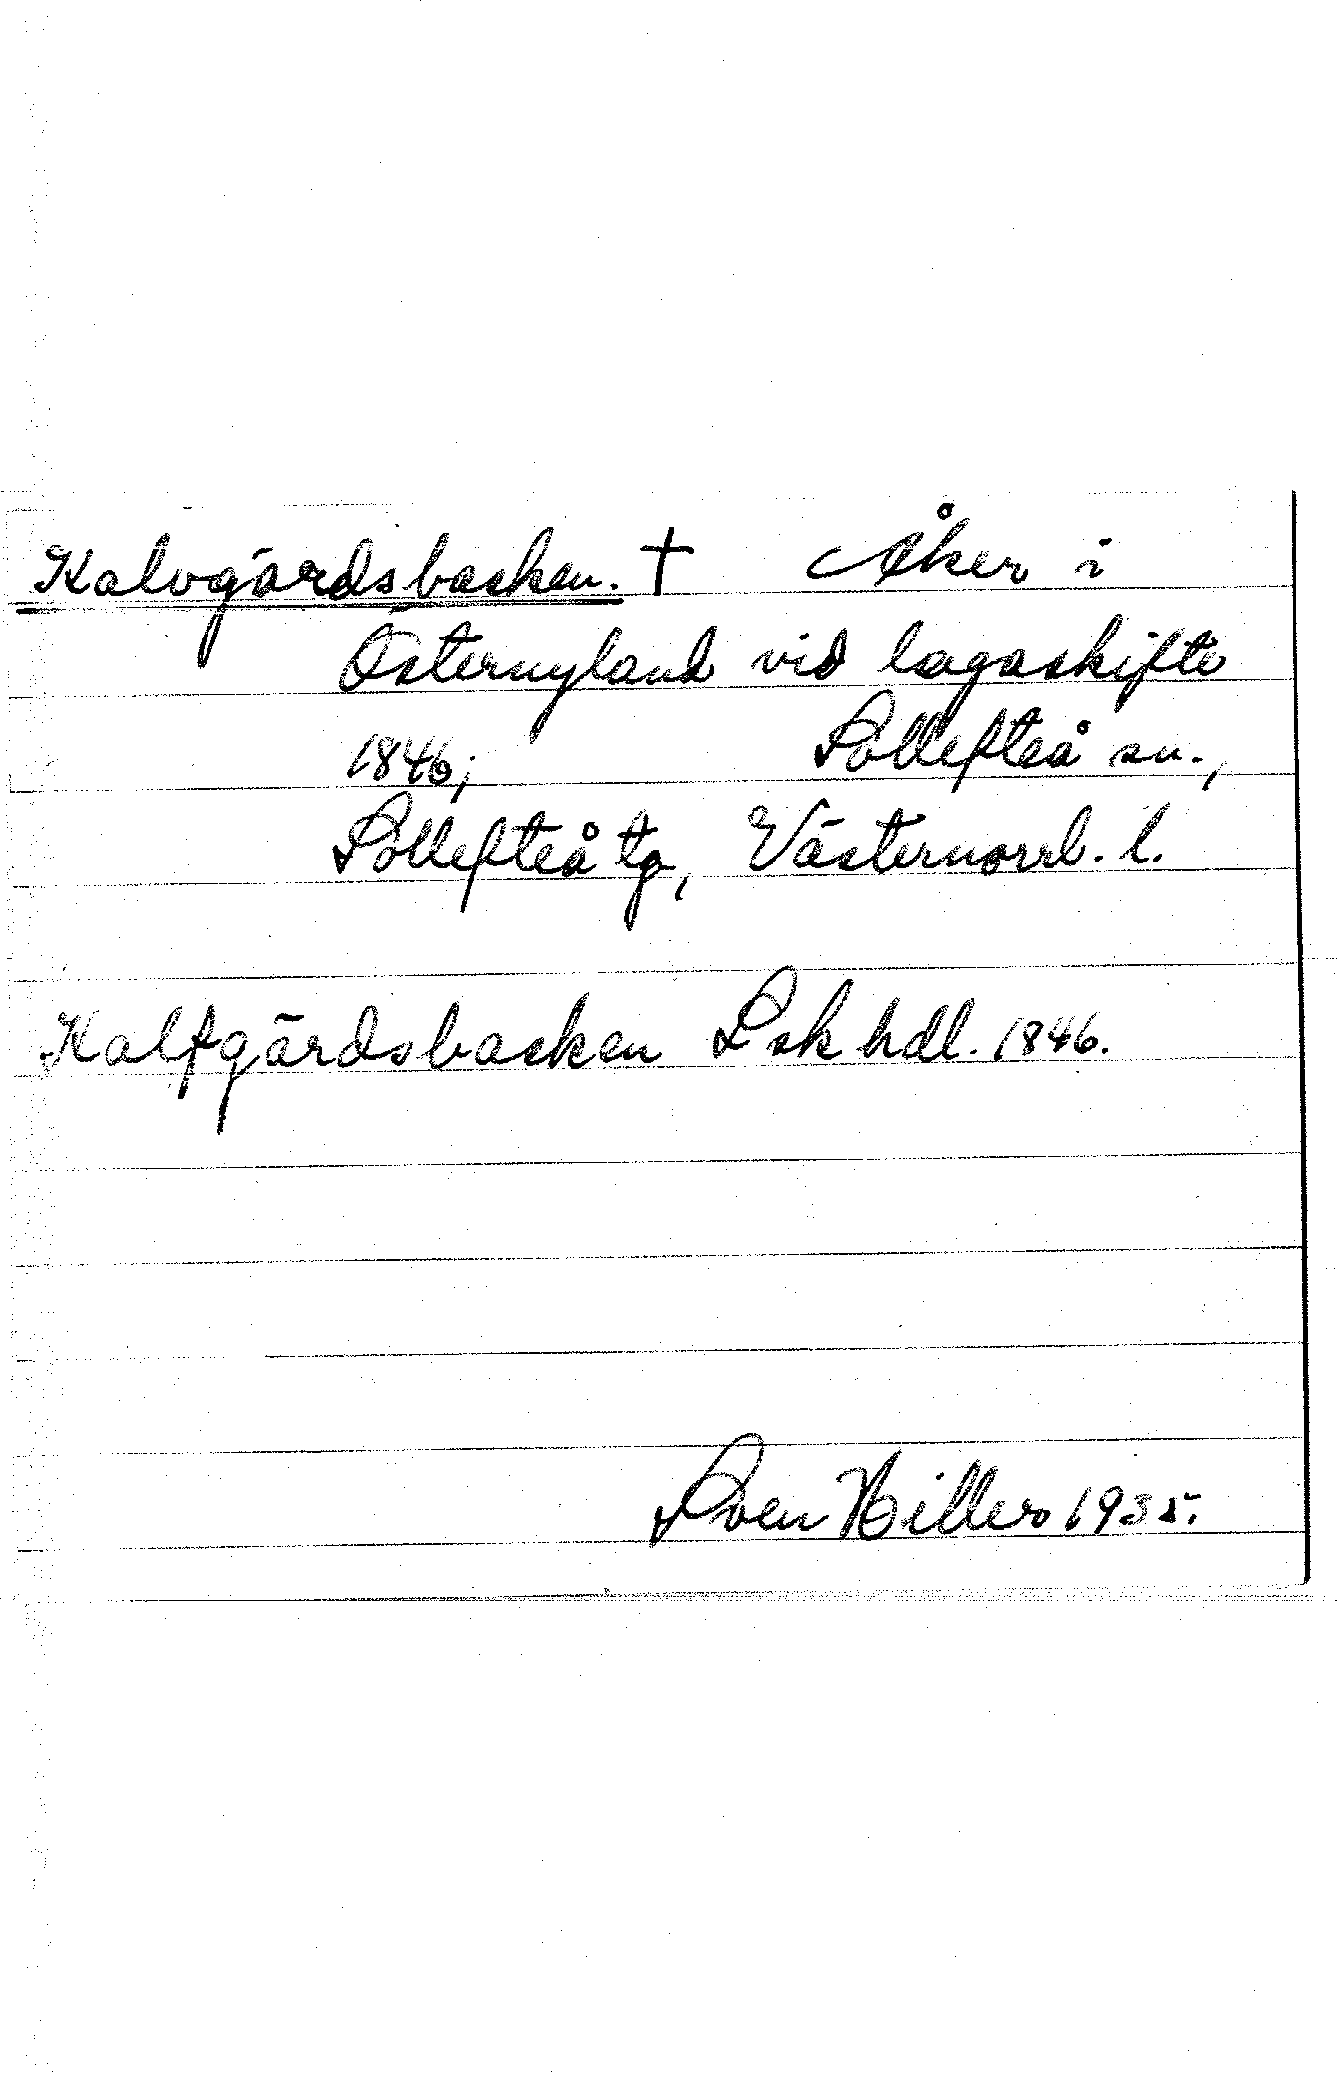 Kalvgårdsbacken. † Åker i
Östernyland vid lagaskifte
1846; Sollefteå sn.,
Sollefteå tg, Västernorrl. l.
Kalfgårdsbacken Lsk hdl. 1846.
Sven Hiller 1935.